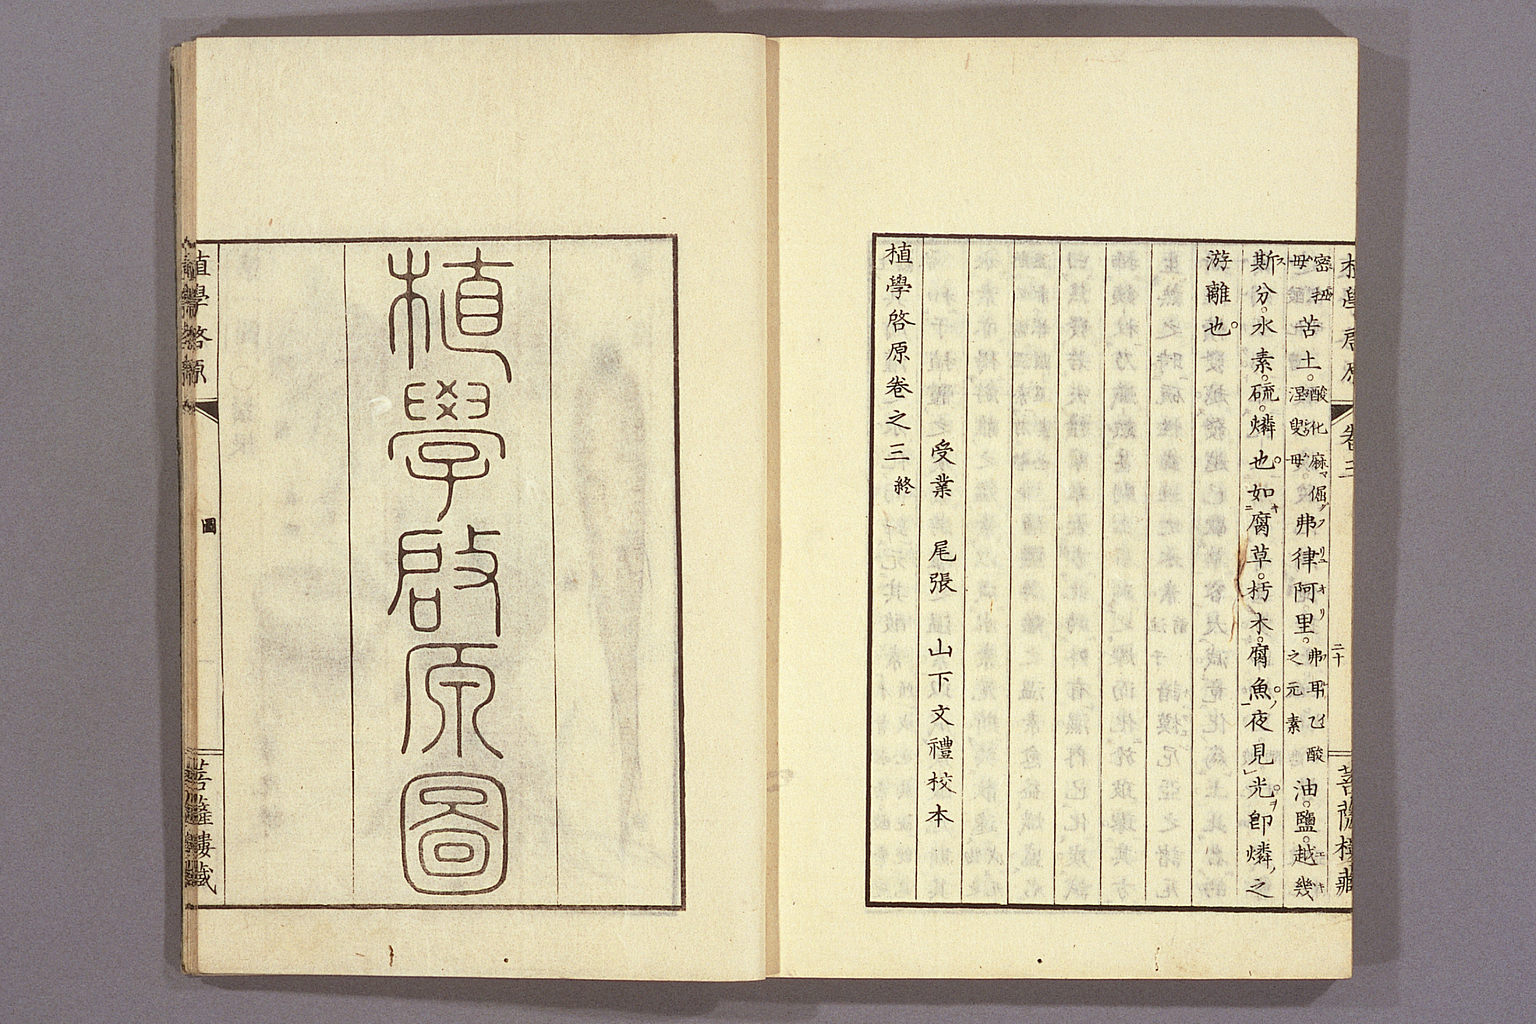 植學啓原 卷三 二十 菩薩樓藏
密扭苦土。酸化麻倔弗律阿里。弗耶酸油。鹽。越幾
斯分。水素。硫。燐也。如腐草。朽木。腐魚。夜見光。卽燐之
游離也。
受業 尾張 山下文禮校本
植學啓原卷之三 終
植學啓原圖
植學啓原 圖 菩薩樓藏